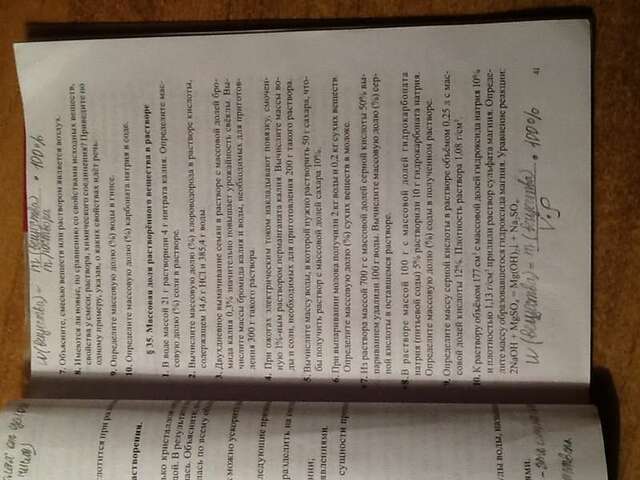 W(вещества) = m(вещества) / m(раствора) • 100%
7. Объясните, смесью веществ или раствором является воздух.
8. Имеются ли новые, по сравнению со свойствами исходных веществ,
свойства у смеси, раствора, химического соединения? Приведите по
одному примеру, указав, о каких свойствах идёт речь.
9. Определите массовую долю (%) воды в гипсе.
10. Определите массовую долю (%) карбоната натрия в соде.
§ 35. Массовая доля растворённого вещества в растворе
1. В воде массой 21 г растворили 4 г нитрата калия. Определите мас-
совую долю (%) соли в растворе.
2. Вычислите массовую долю (%) хлороводорода в растворе кислоты,
содержащем 14,6 г HCl и 385,4 г воды.
3. Двухдневное вымачивание семян в растворе с массовой долей бро-
мида калия 0,3% значительно повышает урожайность свёклы. Вы-
числите массы бромида калия и воды, необходимых для приготов-
ления 300 г такого раствора.
4. При ожогах электрическим током накладывают повязку, смочен-
ную 1%-ным раствором перманганата калия. Вычислите массы во-
ды и соли, необходимых для приготовления 200 г такого раствора.
5. Вычислите массу воды, в которой нужно растворить 50 г сахара, что-
бы получить раствор с массовой долей сахара 10%.
6. При выпаривании молока получили 2 кг воды и 0,2 кг сухих веществ.
Определите массовую долю (%) сухих веществ в молоке.
•7. Из раствора массой 700 г с массовой долей серной кислоты 50% вы-
париванием удалили 100 г воды. Вычислите массовую долю (%) сер-
ной кислоты в оставшемся растворе.
•8. В растворе массой 100 г с массовой долей гидрокарбоната
натрия (питьевой соды) 5% растворили 10 г гидрокарбоната натрия.
Определите массовую долю (%) соды в полученном растворе.
9. Определите массу серной кислоты в растворе объёмом 0,25 л с мас-
совой долей кислоты 12%. Плотность раствора 1,08 г/см³.
10. К раствору объёмом 177 см³ с массовой долей гидроксида натрия 10%
и плотностью 1,13 г/см³ прилили раствор сульфата магния. Опреде-
лите массу образовавшегося гидроксида магния. Уравнение реакции:
2NaOH + MgSO₄ = Mg(OH)₂↓ + Na₂SO₄
W(вещества) = m(вещества) / V•ρ • 100%
41